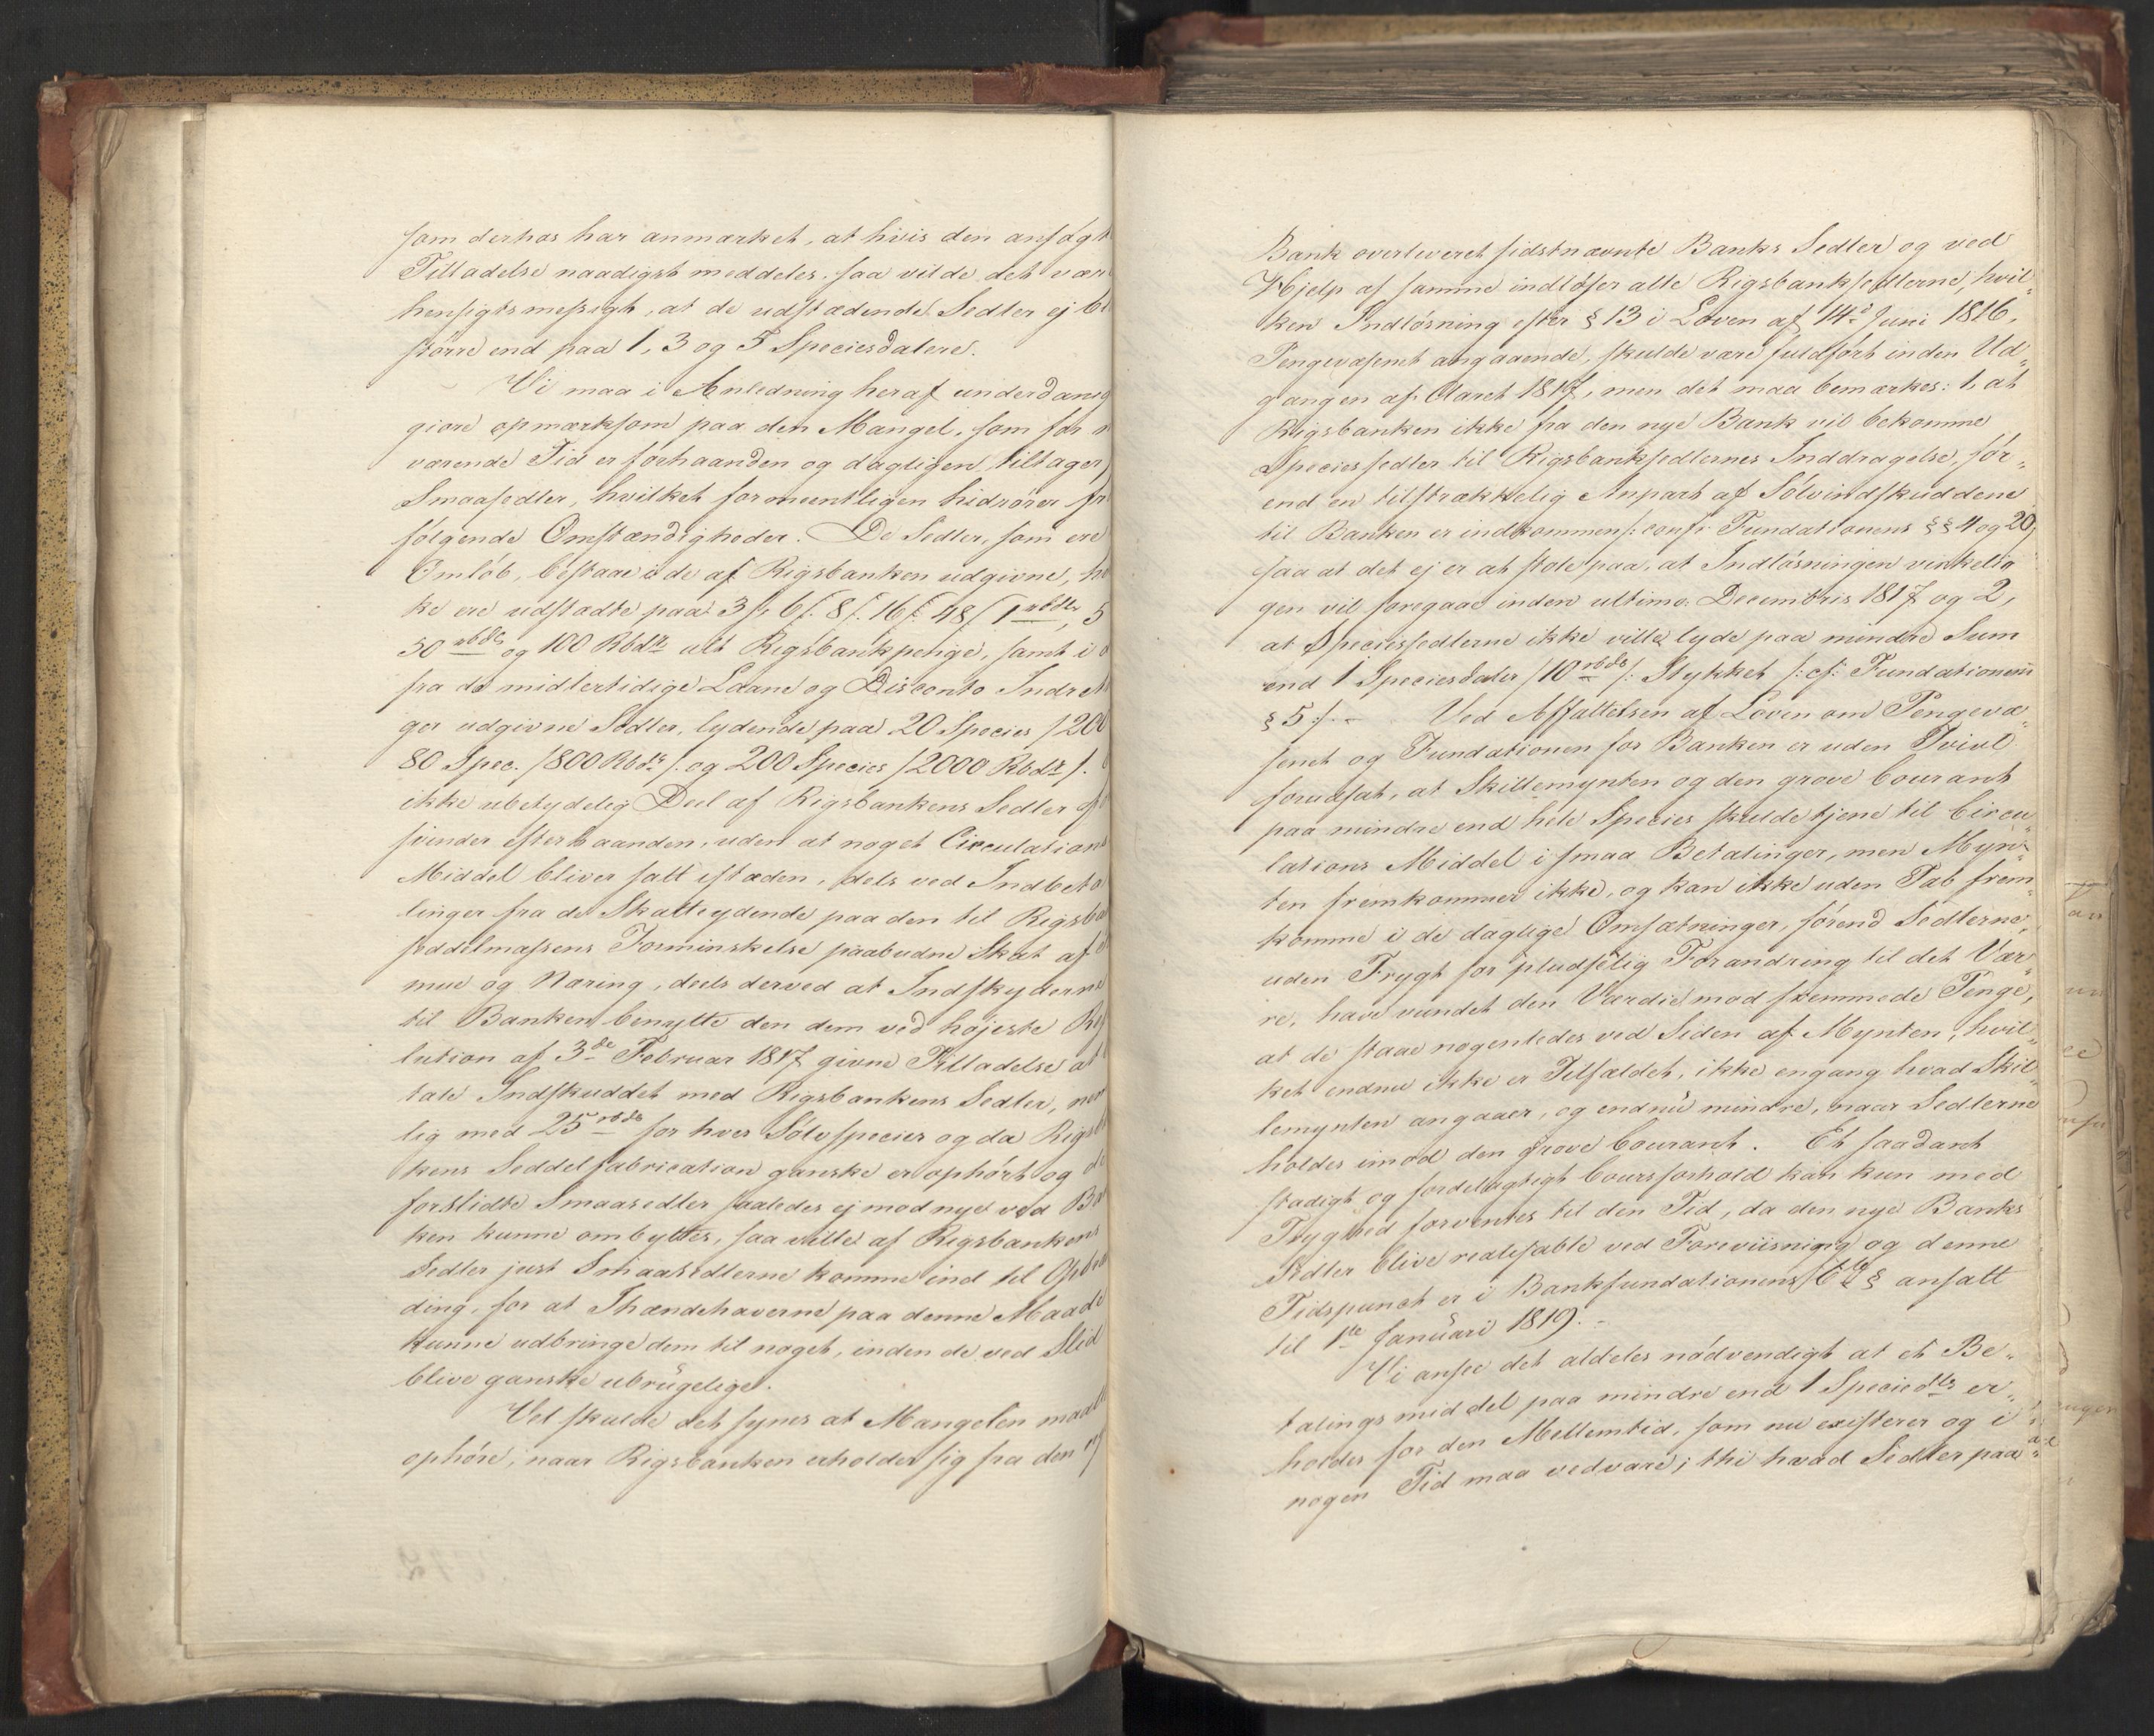 som derhos har anmærket, at hvis den ansøgt
Tilladelse naadigst meddeles, saa vilde det vær
hensigtsmessigt, at de udstædende Sedler ej bl
større end paa 1, 3 og 5 Speciesdalere.
Vi maa i Anledning heraf underdanig
giøre opmærksom paa den Mangel, som for n
værende Tid er forhaanden og dagligen tiltager,
Smaasedler, hvilket formeentligen hidrører fr
følgende Omstændigheder. De Sedler, som ere
Omløb, bestaae i de af Rigsbanken udgivne, hv
ke ere udstædte paa 3 s, 6 s. 8 s. 16 s. 48 s 1 rbdlr, 5
50 rbdr og 100 Rbdr alt Rigsbankpenge, samt i d
fra de midlertidige Laane og Disconto Indretn
ger udgivne Sedler, lydende paa 20 Species /200
80 Spec. /800 Rbdr/. og 200 Species /2000 Rbdr/.
ikke ubetydelig Deel af Rigsbankens Sedler for
svinder efterhaanden, uden at noget Circulations
Middel bliver satt istæden, dels ved Indbeta
linger fra de Skatteydende paa den til Rigsba
seddelmassens Forminskelse paabudne Skat af
mue og Næring, deels derved at Indskyderne
til Banken benytte den dem ved højeste Res
lution af 3de Februar 1817 givne Tilladelse at
tale Indskuddet med Rigsbankens Sedler, nem
lig med 25 rbdr for hver Sølvspecies og da Rigsb
kens Seddelfabrication ganske er ophørt og de
forslidte Smaasedler saaledes ej mod nye ved Ba
ken kunne ombyttes, saa ville af Rigsbankens
Sedler just Smaasedlerne komme ind til
ding, for at Ihændehaverne paa denne Maade
kunne udbringe dem til noget, inden de ved Slid
blive ganske ubrugelige.
Vel skulde det synes at Mangelen maatte
ophøre, naar Rigsbanken erholder sig fra den ny
Bank overleveret sidstnævnte Banks Sedler og ved
Hjelp af samme indløser alle Rigsbanksedlerne, hvil„
ken Indløsning efter § 13 i Loven af 14de Juni 1816,
Pengevæsenet angaaende, skulde være fuldført inden Ud„
gangen af Aaret 1817, men det maa bemærkes: 1, at
Rigsbanken ikke fra den nye Bank vil bekomme
Speciessedler til Rigsbanksedlernes Inddragelse, før„
end en tilstrækkelig Anpart af Sølvindskuddene
til Banken er indkommen /: confr Fundationens §§ 4 og 20,
saa at det ej er at stole paa, at Indløsningen virkelig
gen vil foregaae inden ultimo Decembris 1817 og 2,
at Speciessedlerne ikke ville lyde paa mindre Sum
end 1 Speciesdaler /10 rbdr/: Stykket /: cf: Fundationens
§ 5 :/. — Ved Affattelsen af Loven om Pengevæ„
senet og Fundationen for Banken er uden Tvivl
forudsat, at Skillemynten og den grove Courant
paa mindre end hele Species skulde tjene til Circu„
lations Middel i smaa Betalinger, men Myn„
ten fremkommer ikke, og kan ikke uden Tab frem„
komme i de daglige Omsætninger, førend Sedlerne,
uden Frygt for pludselig Forandring til det Vær„
re, have vundet den Værdie mod fremmede Penge,
at de staae nogenledes ved Siden af Mynten, hvil„
ket endnu ikke er Tilfældet, ikke engang hvad Skil„
lemynten angaaer, og endnu mindre, naar Sedlerne
holdes imod den grove Courant. Et saadant
stadigt og fordelagtigt Coursforhold kan kun med
Tryghed forventes til den Tid, da den nye Banks
Sedler blive realisable ved Foreviisning og denne
Tidspunct er i Bankfundationens 6te § ansatt
til 1te Januari 1819. –
Vi ansee det aldeles nødvendigt at et Be„
talingsmiddel paa mindre end 1 Speciedlr er„
holdes for den Mellemtid, som nu existerer og i
nogen Tid maa vedvare; thi hvad Sedler paa